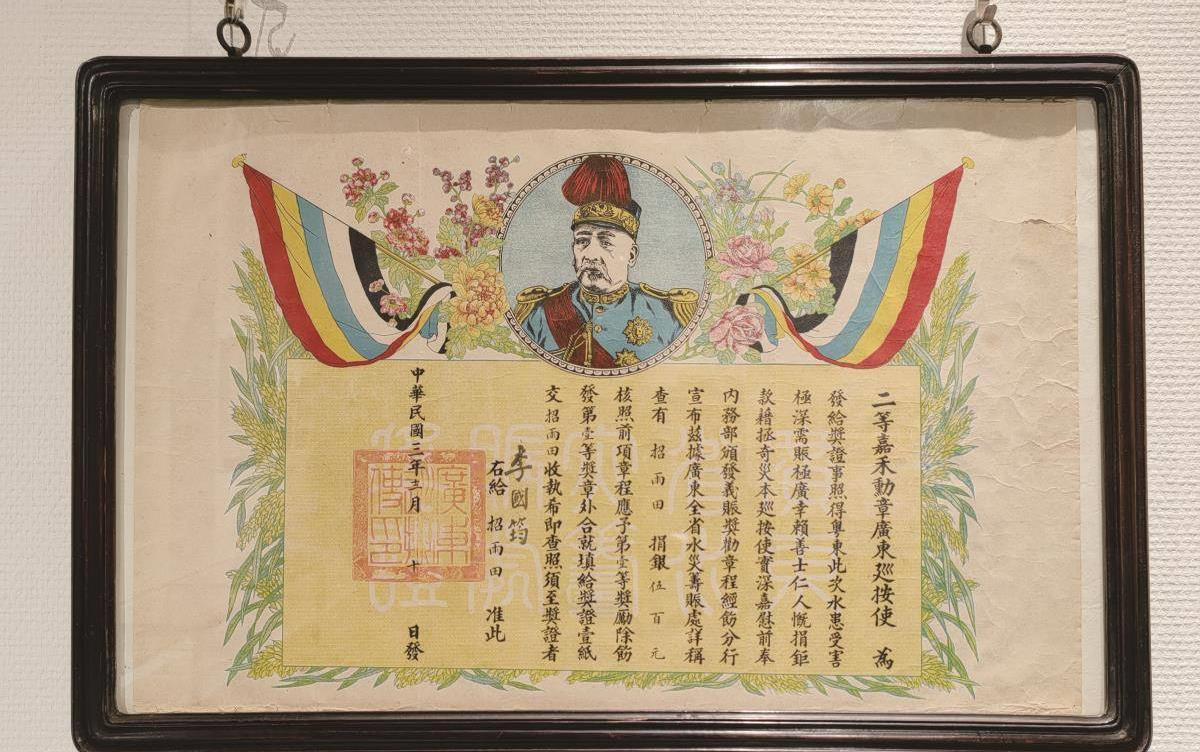 二等嘉禾勳章廣東巡按使 為
發給獎證事照得粵東此次水患受害
極深需賑極廣幸賴善士仁人慨捐鉅
款藉拯奇災本巡按使實深嘉慰前奉
內務部頒發義賑獎勸章程經飭分行
宣布茲據廣東全省水災籌賑處詳稱
查有 招雨田 捐銀伍百元
核照前項章程應予第壹等獎勵除飭
發第壹等獎章外合就填給獎證壹紙
交招雨田收執希即查照須至獎證者
李國筠
右給 招雨田 准此
中華民國三年 月 十 日發